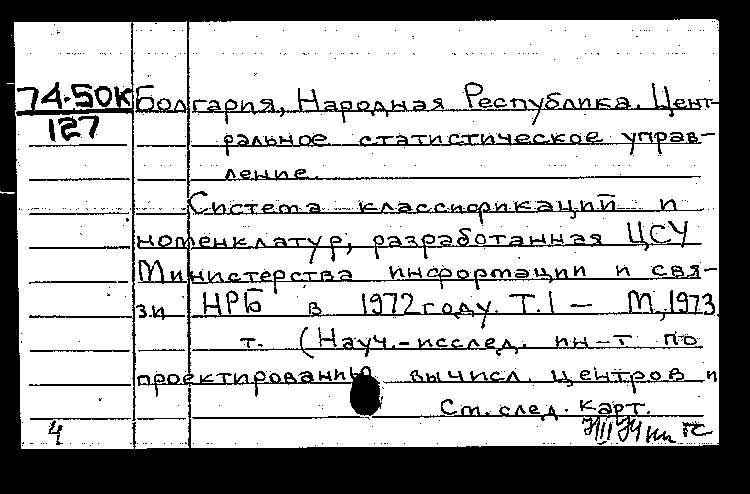 74-50К Болгария, Народная Республика. Цент-
127
ральное статистическое управ-
ление.
Система классификаций и
номенклатур, разработанная ЦСУ
Министерства информации и свя-
зи НРБ в 1972 году. Т.1 — М, 1973
т. (Науч.-исслед. ин-т по
проектированию вычисл. центров и
См. след. карт.
4